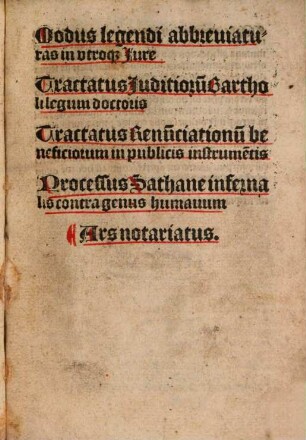 Modus legendi abbreviatu
ras in vtroqꝫ Jure
Tractatus Juditiorũ Bartho
li legum doctoris
Tractatus Renũciationũ be
neficiorum in publicis instrumẽtis
Processus Sathane inferna
lis contra genus humanum
Ars notariatus.